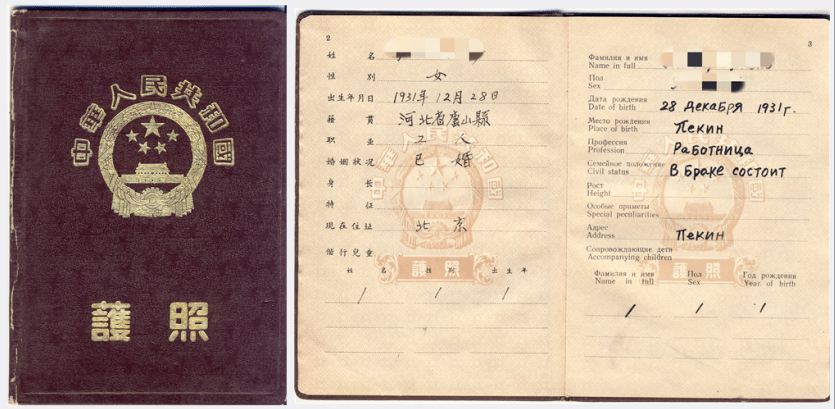 中華人民共和國
護照
2
姓 名
性 別 女
出生年月日 1931年12月28日
籍 貫 河北省 山縣
职 业 工 人
婚姻狀况 已 婚
身 長
特 征
現在住址 北 京
偕行兒童
姓 名 性 別 出 生 年
/ / /
護照
3
Фамилия и имя
Name in full
Пол
Sex
Дата рождения
Date of birth 28 декабря 1931г.
Место рождения
Place of birth Пекин
Профессия
Profession Работница
Семейное положение
Civil status в браке состоит
Рост
Height
Особые приметы
Special peculiarities
Адрес
Address Пекин
Сопровождающие дети
Accompanying children
Фамилия и имя Пол Год рождения
Name in full Sex Year of birth
/ / /
護照